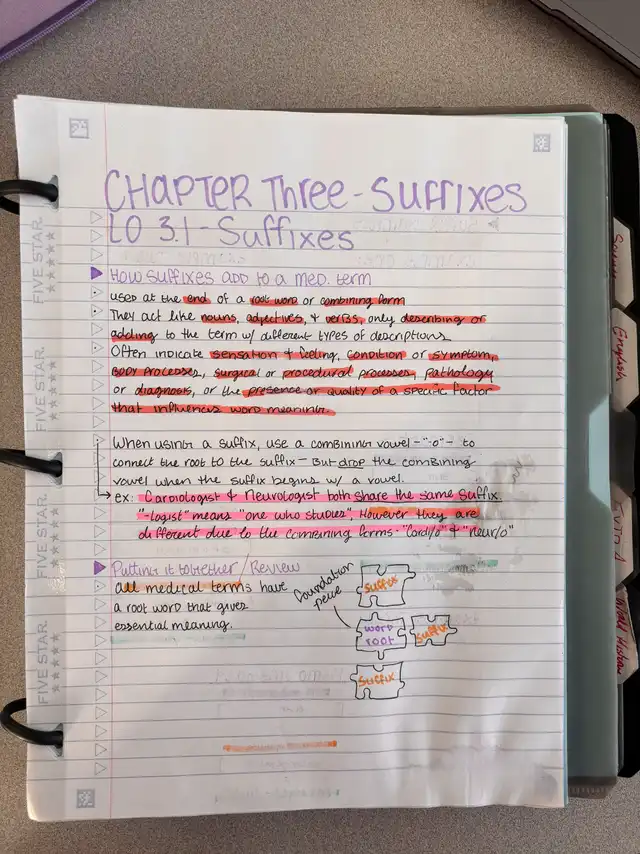 CHAPTER Three - Suffixes
LO 3.1 - Suffixes
How suffixes add to a med. term
used at the end of a root word or combining form
They act like nouns, adjectives, & verbs, only describing or
adding to the term w/ different types of descriptions
Often indicate sensation & feeling, condition or symptom,
Body processes, surgical or procedural processes, pathology
or diagnosis, or the presence or quality of a specific factor
that influences word meaning.
When using a suffix, use a combining vowel - "-o" - to
connect the root to the suffix - But drop the combining
vowel when the suffix begins w/ a vowel.
ex: Cardiologist & Neurologist both share the same suffix
"-logist" means "one who studies". However they are
different due to the combining forms - "Cardi/o" & "neur/o"
Putting it together / Review
all medical terms have
a root word that gives
essential meaning.
Foundation
peice
Suffix
word
root
Suffix
Suffix
FIVE STAR
FIVE STAR
FIVE STAR
FIVE STAR
English